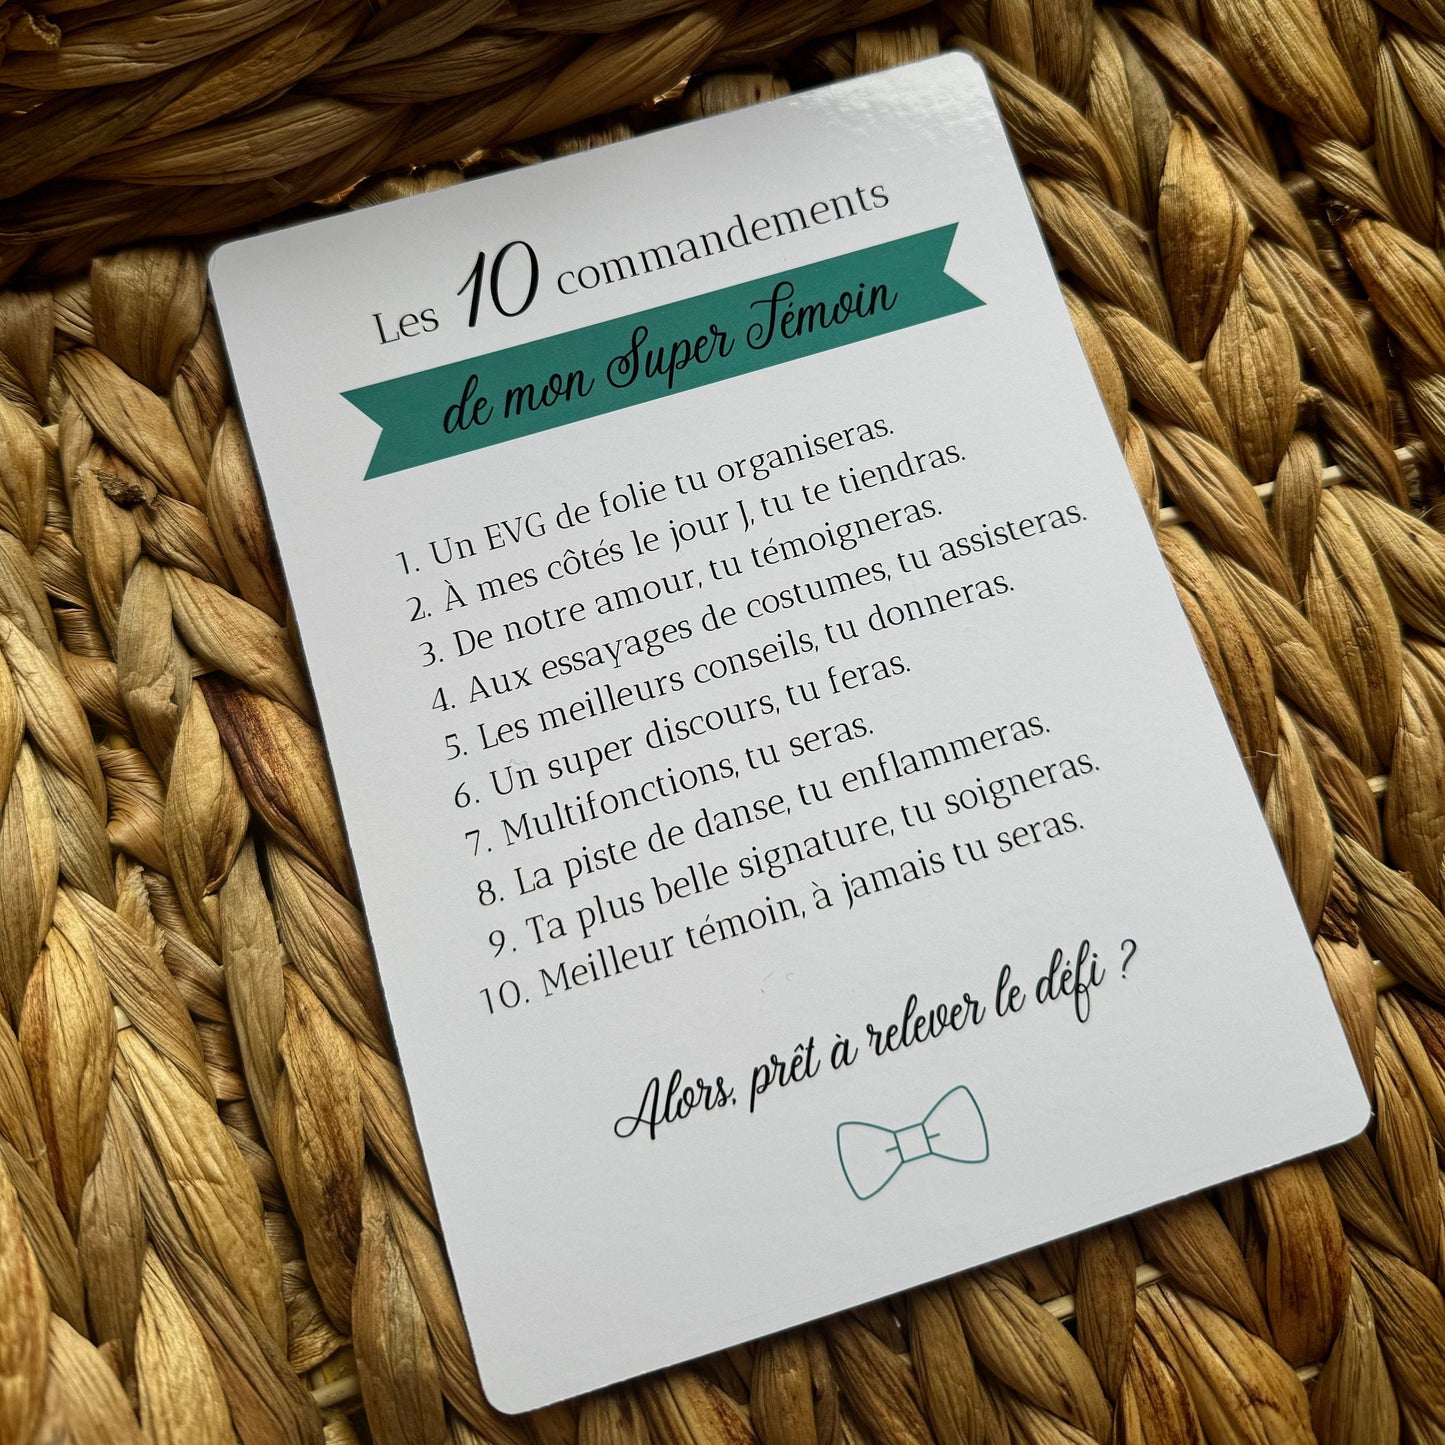 Les 10 commandements
de mon Super Témoin
1. Un EVG de folie tu organiseras.
2. À mes côtés le jour J, tu te tiendras.
3. De notre amour, tu témoigneras.
4. Aux essayages de costumes, tu assisteras.
5. Les meilleurs conseils, tu donneras.
6. Un super discours, tu feras.
7. Multifonctions, tu seras.
8. La piste de danse, tu enflammeras.
9. Ta plus belle signature, tu soigneras.
10. Meilleur témoin, à jamais tu seras.
Alors, prêt à relever le défi ?